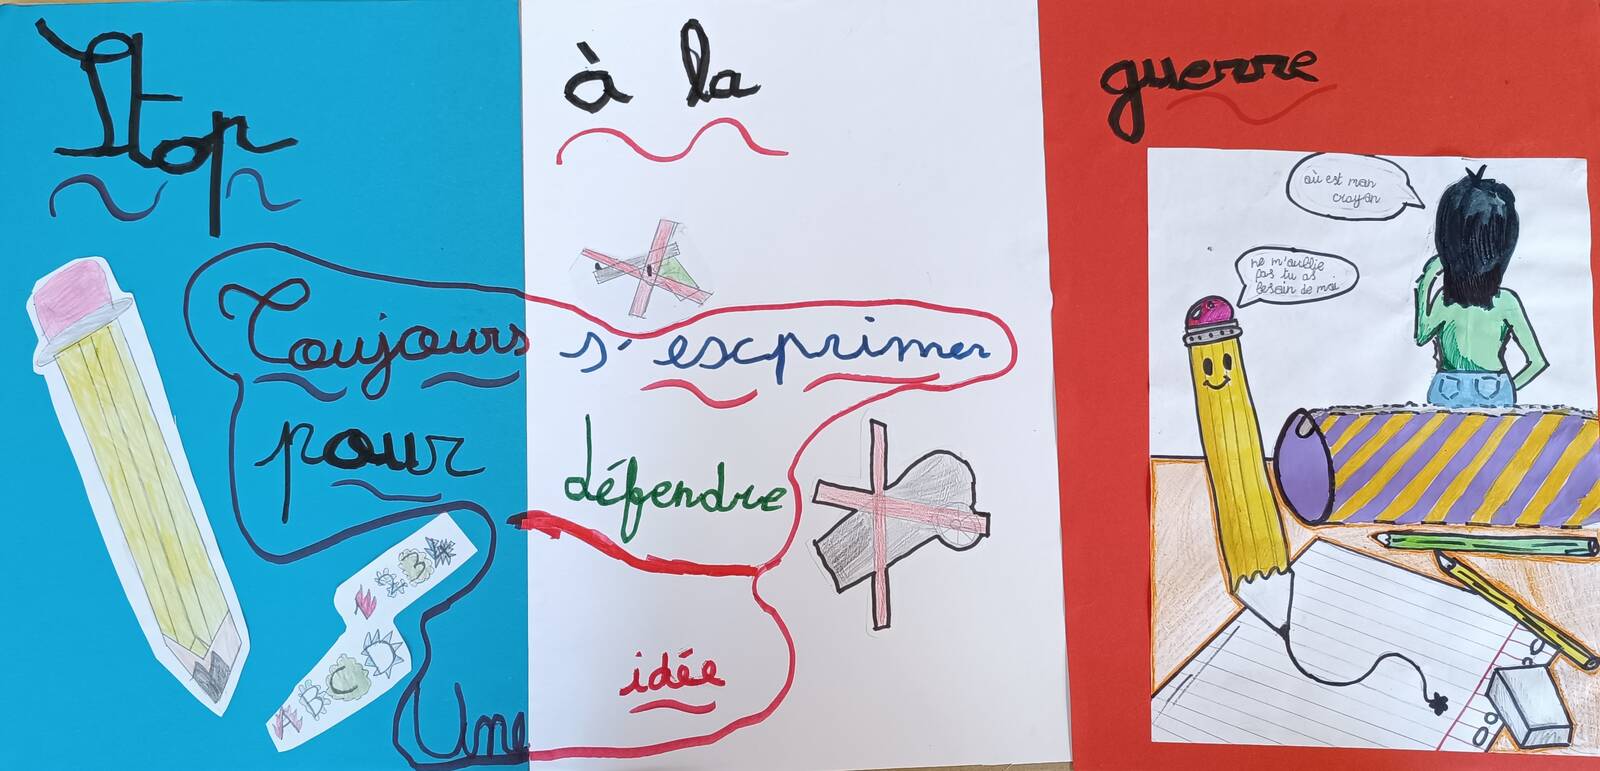 Stop à la guerre
Toujours s'exprimer
pour défendre
Une idée
A B C D
où est mon
crayon
ne m'oublie
pas tu as
besoin de moi